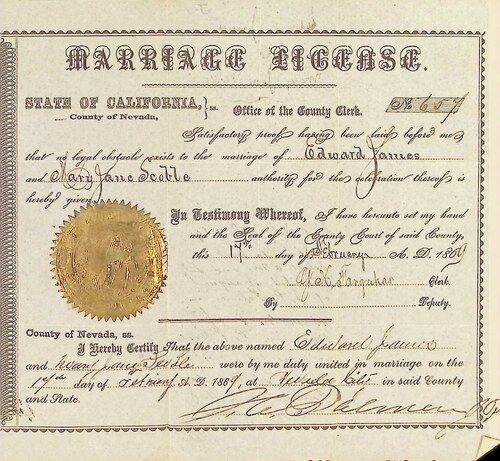 MARRIAGE LICENSE.
STATE OF CALIFORNIA, ss. Office of the County Clerk. No 659
County of Nevada,
Satisfactory proof having been laid before me
that no legal obstacle exists to the marriage of Edward James
and Mary Jane Scoble authority for the celebration thereof is
hereby given.
In Testimony Whereof, I have hereunto set my hand
and the Seal of the County Court of said County,
this 17th day of February A. D. 1869
Farquhar Clerk.
By Deputy.
County of Nevada, ss.
I Hereby Certify That the above named Edward James
and Mary Jane Scoble were by me duly united in marriage on the
17th day of February A. D. 1869, at Nevada City in said County
and State.